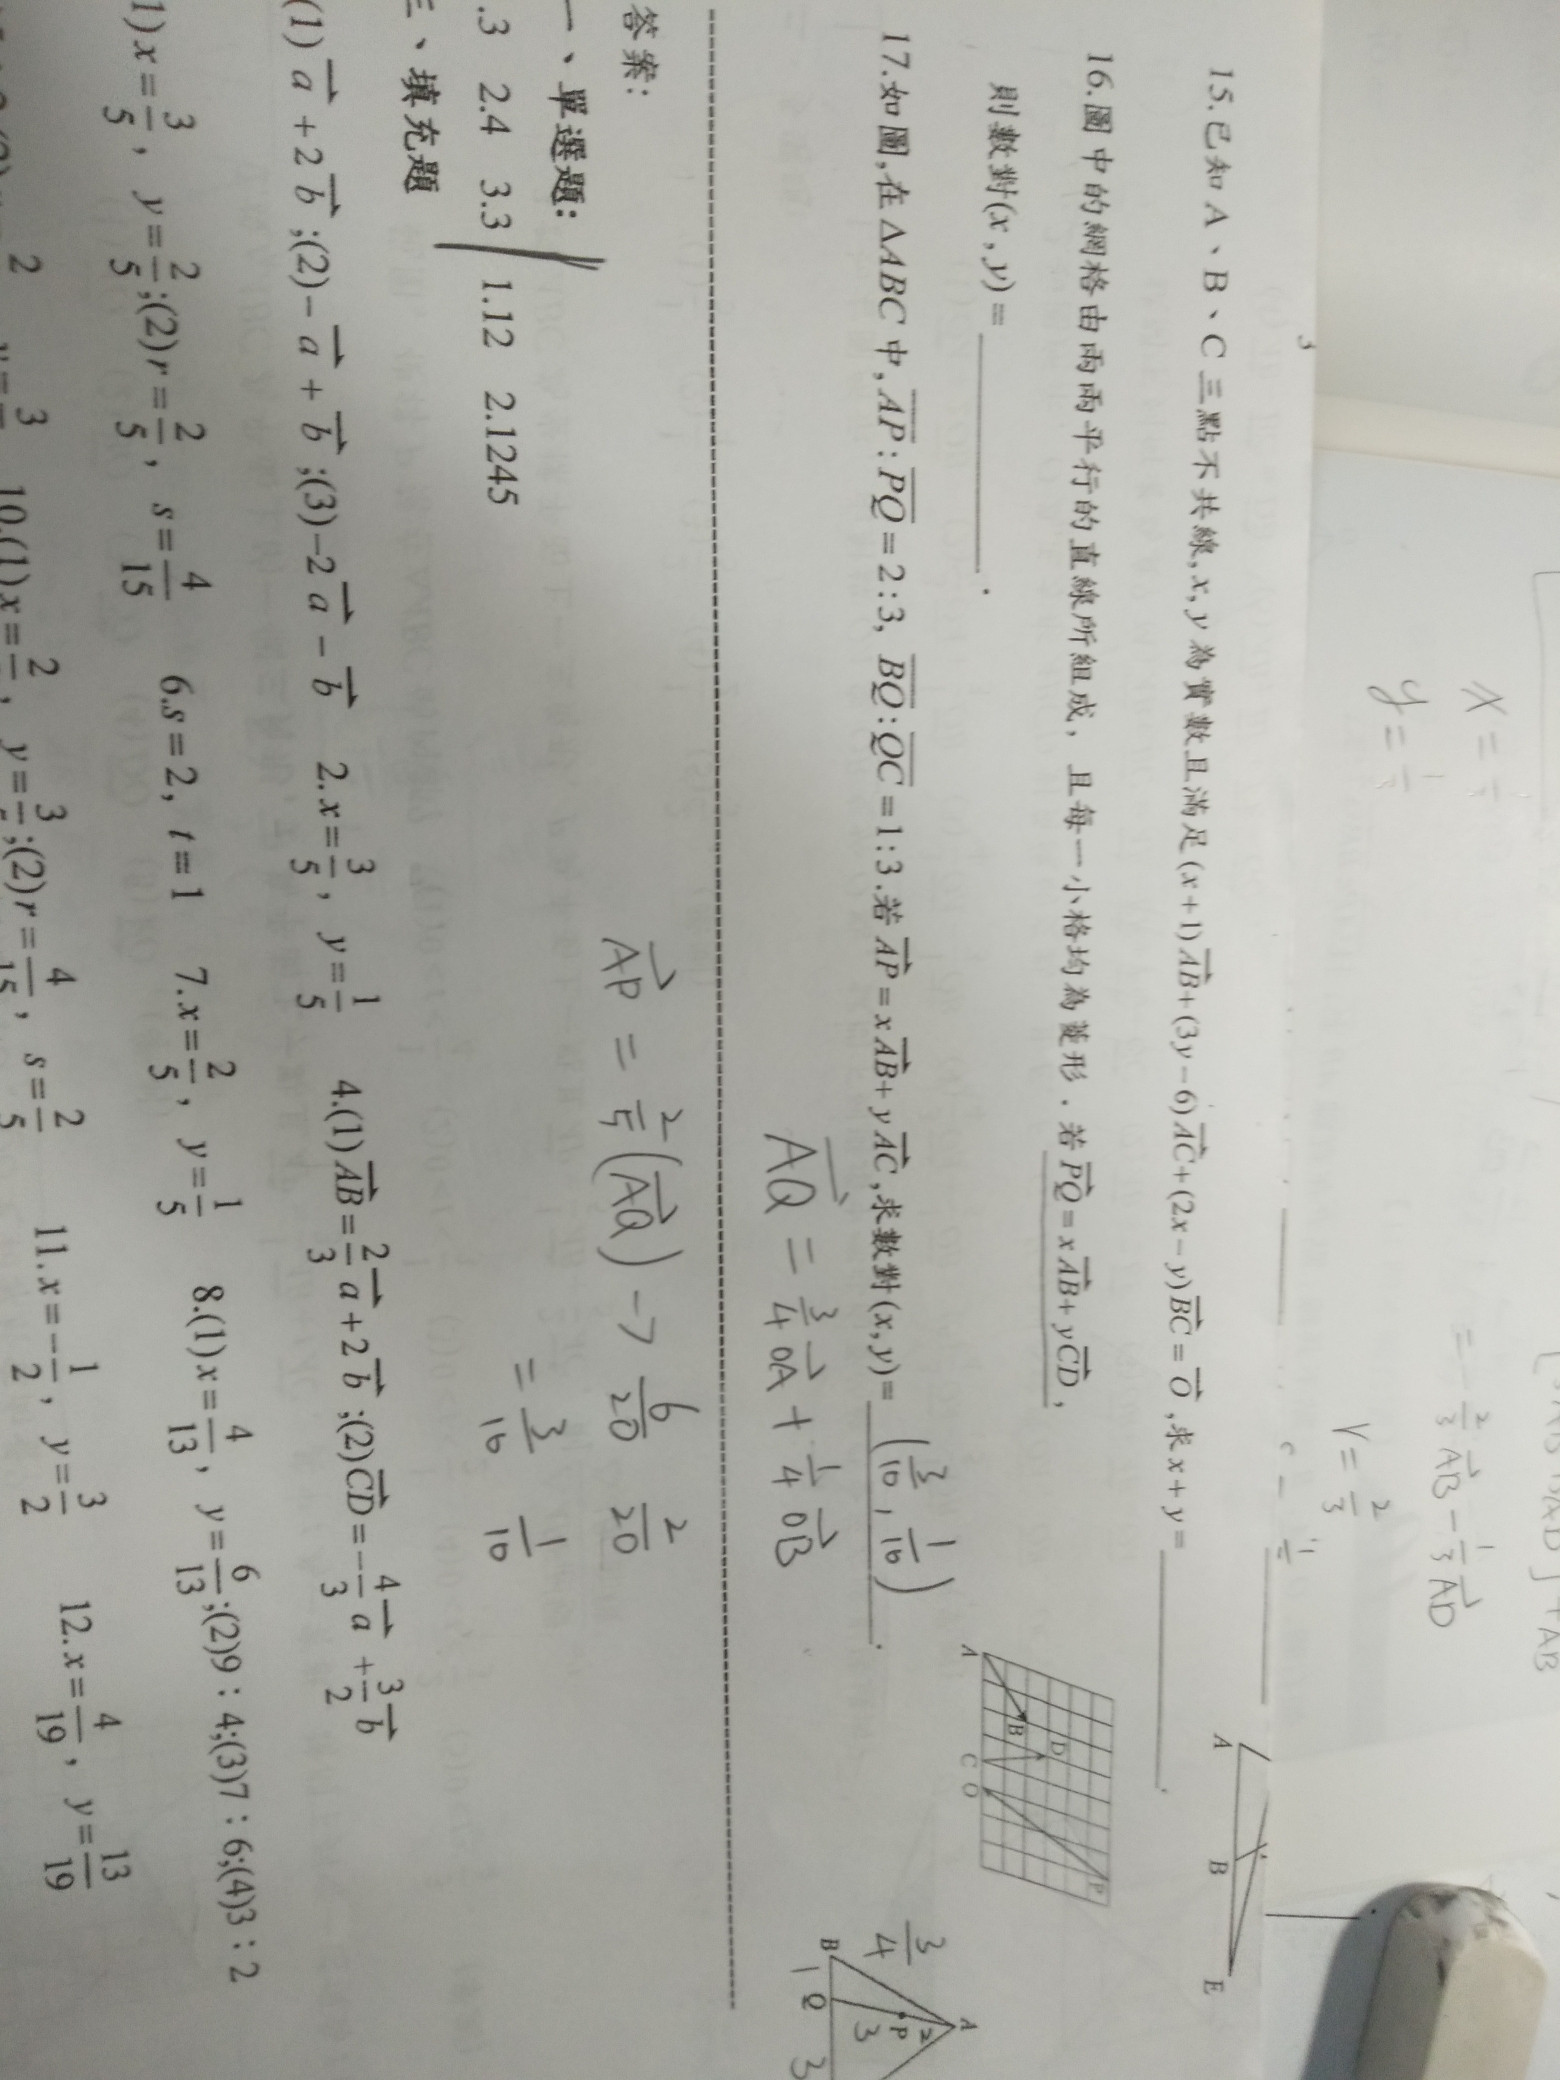 3
x =
y = 1/3
= 2/3 AB⃗ − 1/3 AD⃗
r = 2/3
A B E
15.已知 A、B、C 三點不共線,x, y 為實數且滿足(x+1)AB⃗+(3y−6)AC⃗+(2x−y)BC⃗=O⃗,求x+y=________.
16.圖中的網格由兩兩平行的直線所組成，且每一小格均為菱形．若PQ⃗=xAB⃗+yCD⃗,
則數對(x,y)=________.
A B C D Q P
17.如圖,在△ABC中,AP̅:PQ̅=2:3, BQ̅:QC̅=1:3.若AP⃗=xAB⃗+yAC⃗,求數對(x,y)=(3/10, 1/10).
AQ⃗ = 3/4 OA⃗ + 1/4 OB⃗
3/4
A
2
P
3
B 1 Q 3
AP⃗ = 2/5 (AQ⃗) → 6/20 2/20
= 3/10 1/10
答案:
一、單選題:
.3 2.4 3.3 1.12 2.1245
三、填充題
(1) a⃗+2b⃗;(2)−a⃗+b⃗;(3)−2a⃗−b⃗ 2.x=3/5, y=1/5 4.(1)AB⃗=2/3a⃗+2b⃗;(2)CD⃗=−4/3a⃗+3/2b⃗
1)x=3/5, y=2/5;(2)r=2/5, s=4/15 6.s=2, t=1 7.x=2/5, y=1/5 8.(1)x=4/13, y=6/13;(2)9：4;(3)7：6;(4)3：2
10.(1)x=2/, y=3/;(2)r=4/15, s=2/5 11.x=−1/2, y=3/2 12.x=4/19, y=13/19